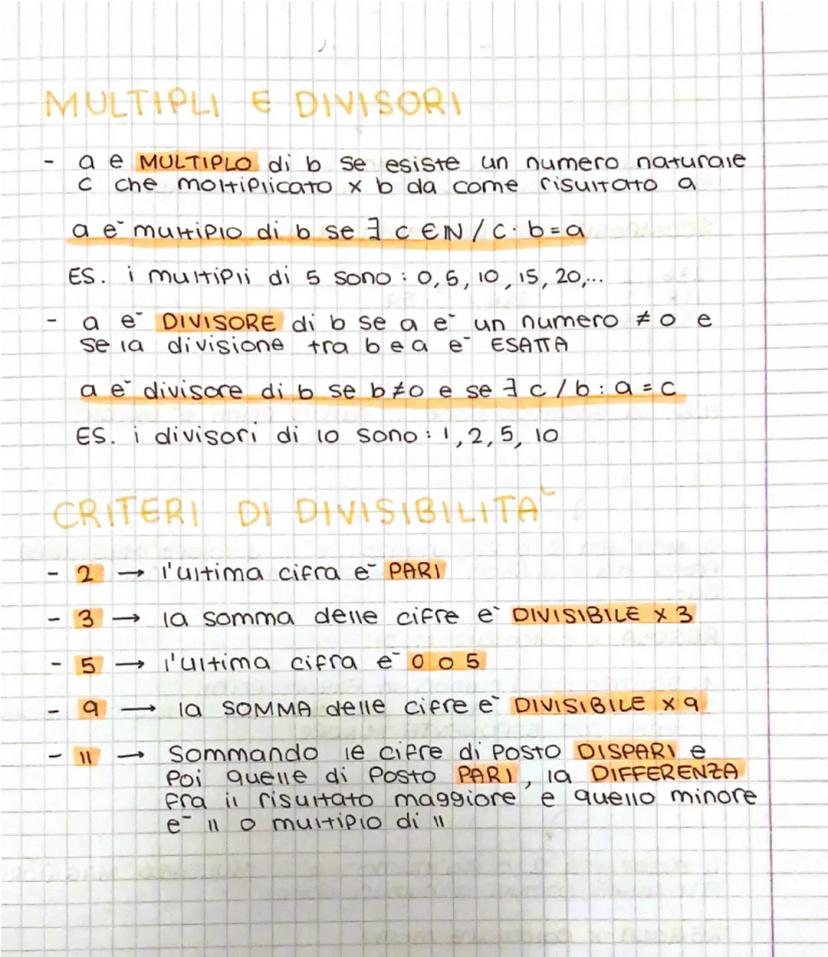 MULTIPLI E DIVISORI
- a e MULTIPLO di b se esiste un numero naturale
c che moltiplicato x b da come risultato a
a e` multiplo di b se ∃ c ∈ ℕ / c · b = a
ES. i multipli di 5 sono : 0, 5, 10, 15, 20,...
- a e` DIVISORE di b se a e` un numero ≠ 0 e
se la divisione tra b e a e` ESATTA
a e` divisore di b se b ≠ 0 e se ∃ c / b : a = c
ES. i divisori di 10 sono : 1, 2, 5, 10
CRITERI DI DIVISIBILITA`
- 2 → l'ultima cifra e` PARI
- 3 → la somma delle cifre e` DIVISIBILE x 3
- 5 → l'ultima cifra e` 0 o 5
- 9 → la SOMMA delle cifre e` DIVISIBILE x 9
- 11 → Sommando le cifre di posto DISPARI e
poi quelle di posto PARI, la DIFFERENZA
fra il risultato maggiore e quello minore
e` 11 o multiplo di 11